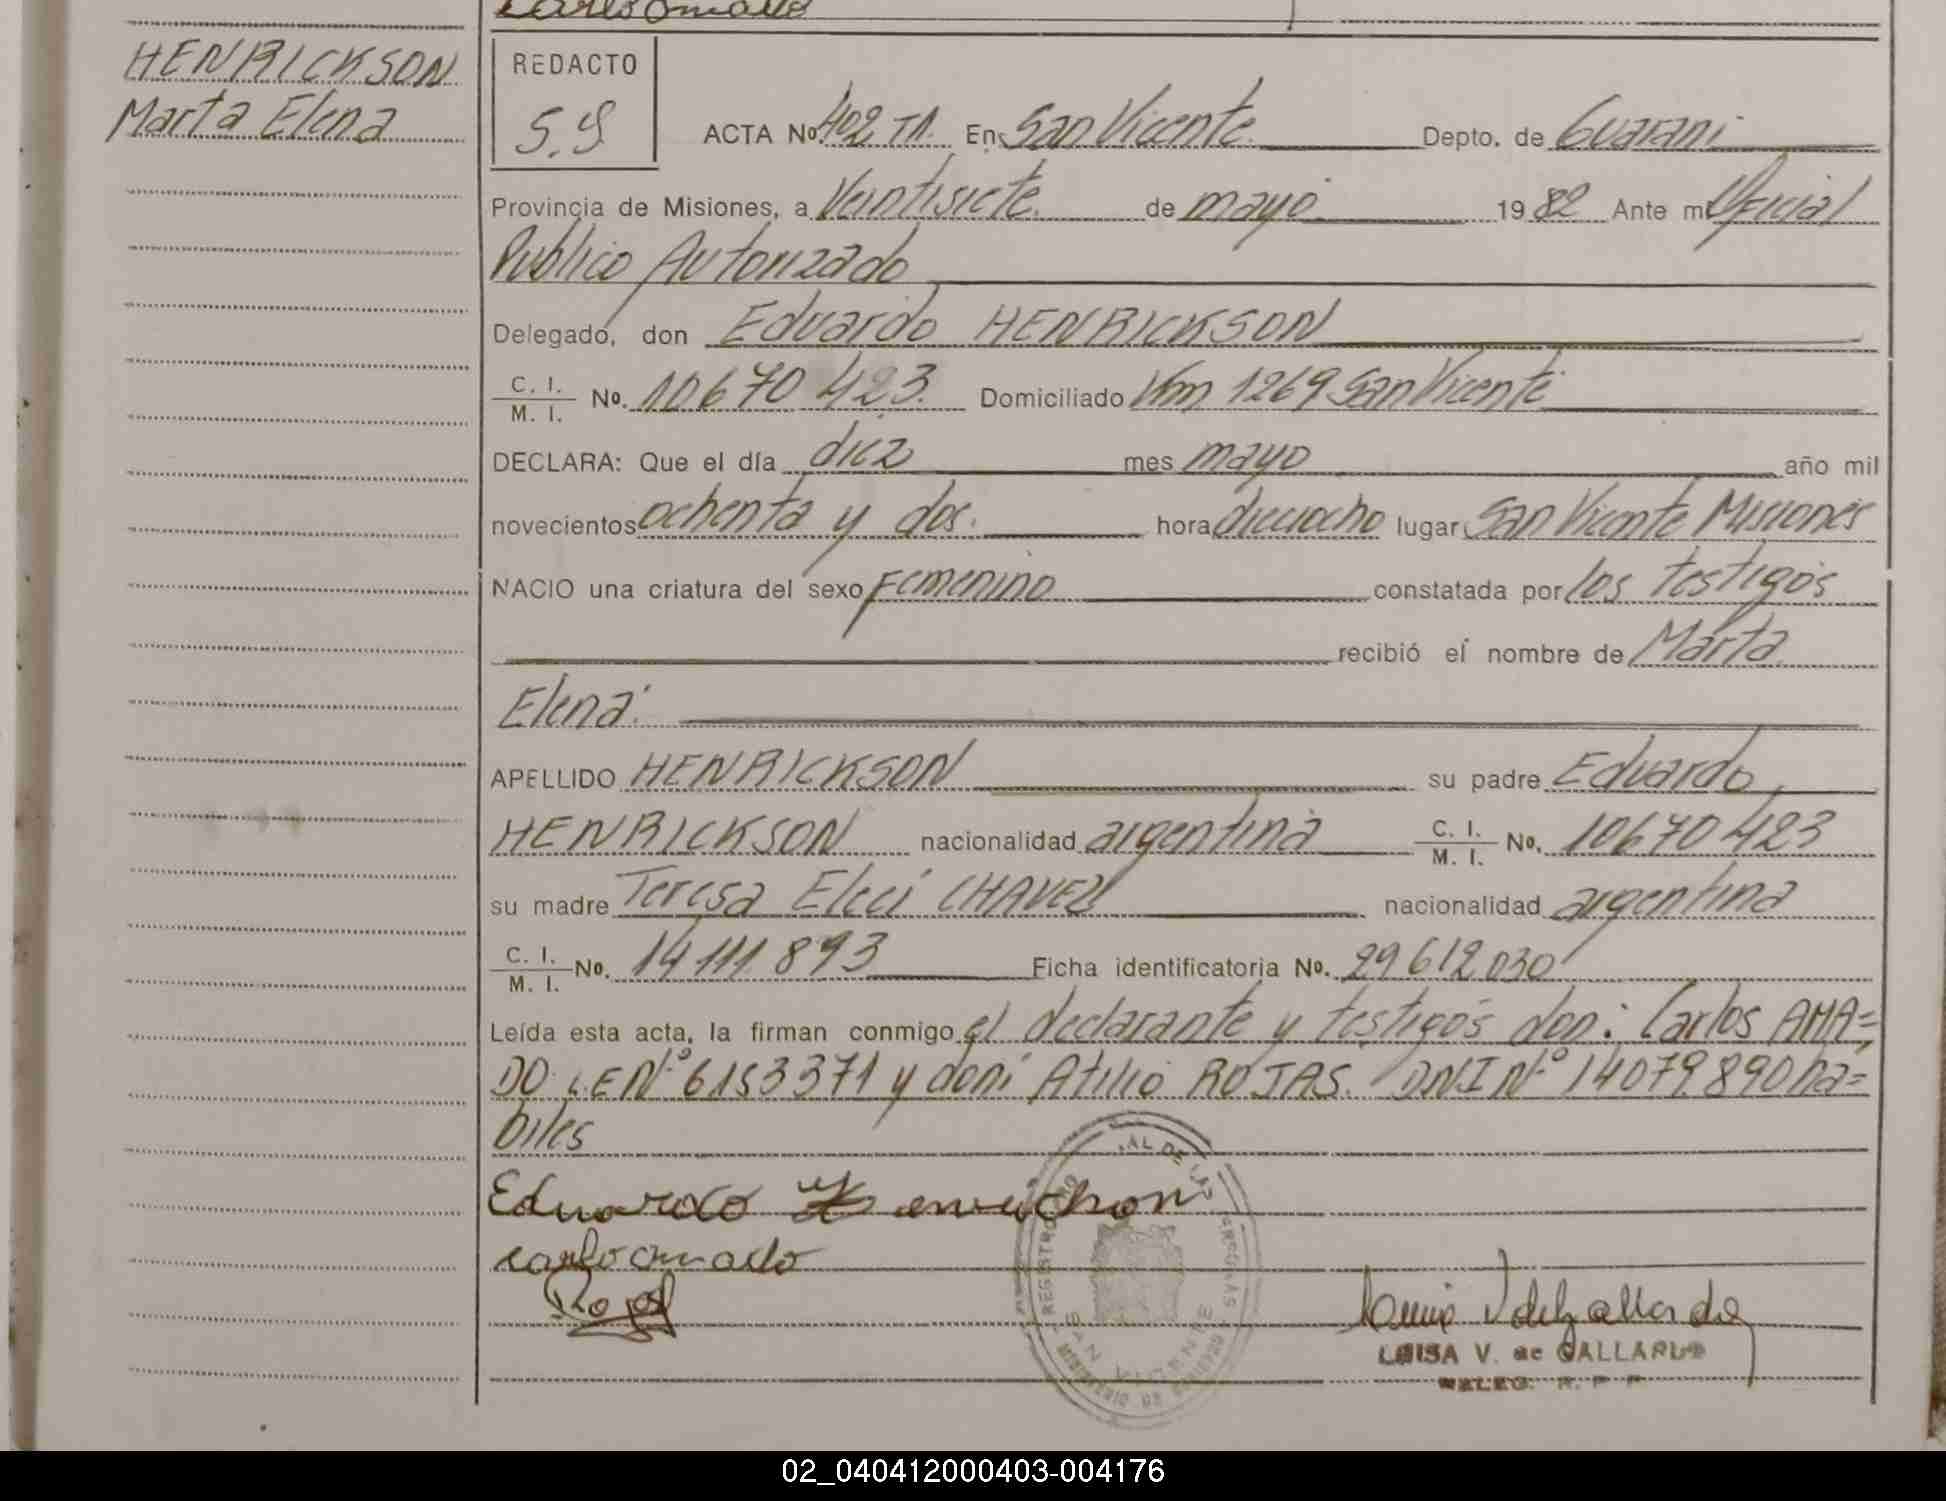 HENRICKSON
Marta Elena
REDACTO
S.S.
ACTA No. 402 TA. En San Vicente. Depto. de Guarani
Provincia de Misiones, a Veintisiete. de mayo 19 82 Ante mi Oficial
Publico Autorizado
Delegado, don Eduardo HENRICKSON
C. I.
M. I. No. 10670 423. Domiciliado Km 1269 San Vicente
DECLARA: Que el día diez mes mayo año mil
novecientos ochenta y dos. hora dieciocho lugar San Vicente Misiones
NACIO una criatura del sexo Femenino constatada por los testigos
recibió el nombre de Marta
Elena.
APELLIDO HENRICKSON su padre Eduardo
HENRICKSON nacionalidad argentina C. I.
M. I. No. 10670 423
su madre Teresa Eleci CHAVEZ nacionalidad argentina
C. I.
M. I. No. 14 111 893 Ficha identificatoria No. 29 612 030
Leída esta acta, la firman conmigo el declarante y testigos don: Carlos AMA=
DO L.E Nº 6153371 y don: Atilio ROJAS. DNI Nº 14079.890 ha=
biles
Eduardo
carlos amado
Rojas
SAN VICENTE
LUISA V. de GALLARDO
DELEG. R. P. P.
02_040412000403-004176